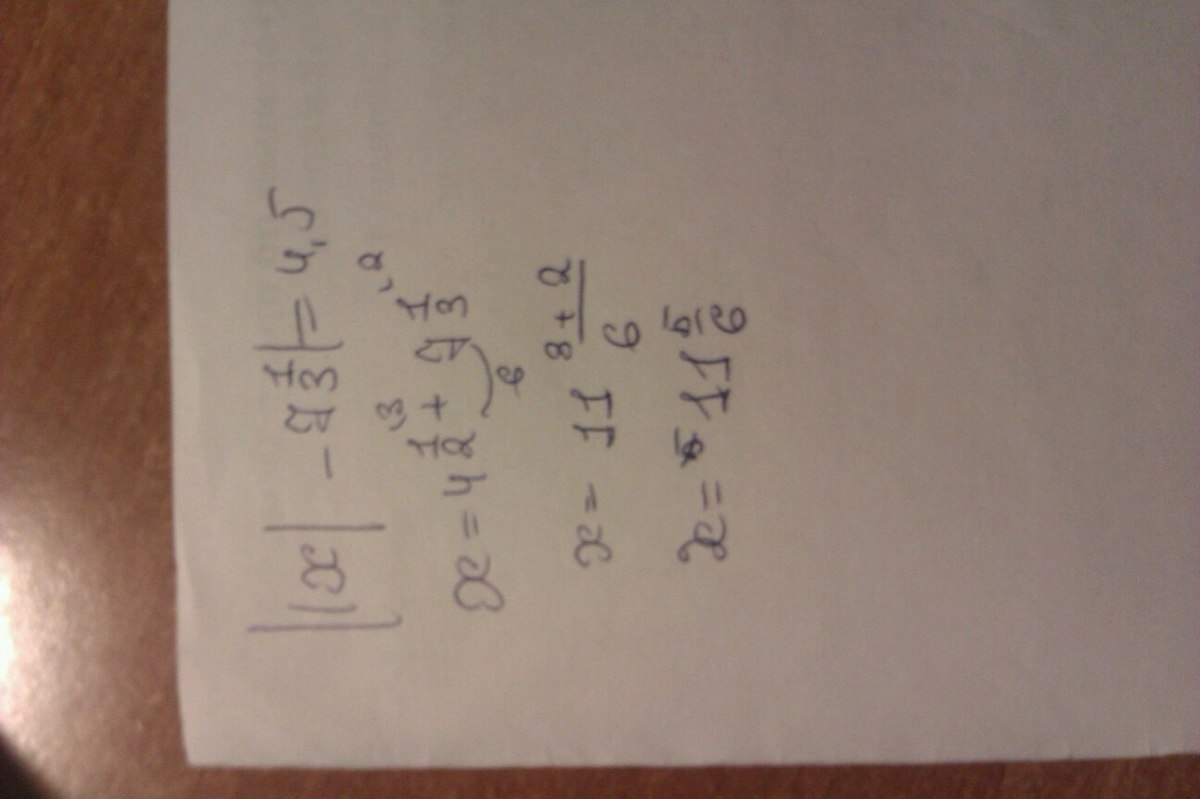 ||x| - 7 1/3| = 4,5
x = 4 1/2 ,3 + 7 1/3 ,2 6
x = 11 3+2/6
x = 11 5/6